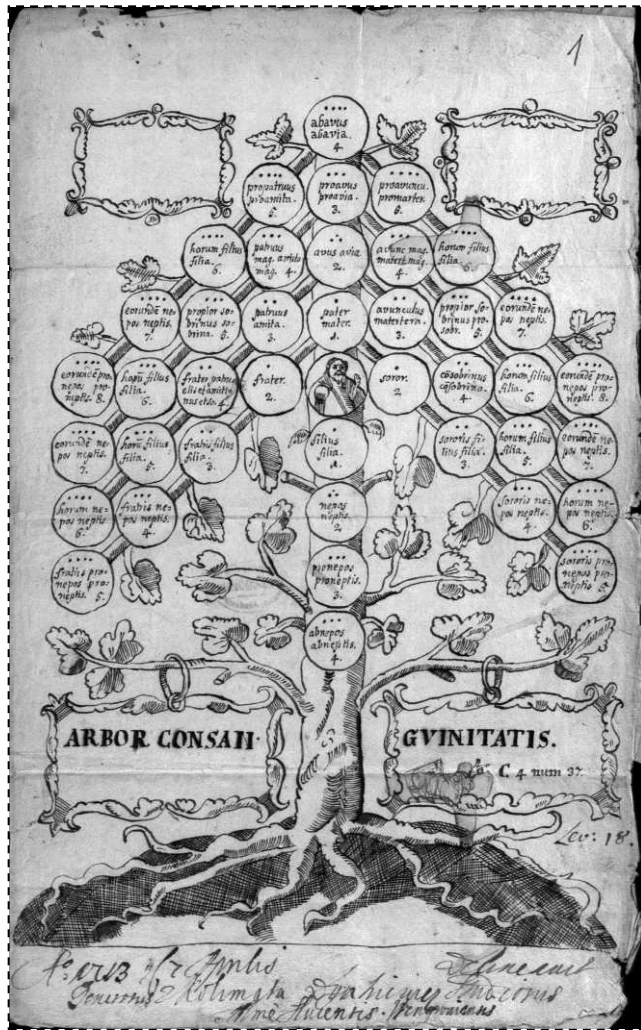 1
abavus
abavia.
4.
propatruus
proamita.
5.
proavus
proavia.
3.
proavuncu.
promarter.
5.
horum filius
filia.
6.
patruus
mag. amita
mag. 4.
avus avia.
2.
avunc. mag.
matert. mag.
4.
horum filius
filia.
6.
eorundē ne-
pos neptis.
7.
propior so-
brinus so-
brina. 5.
patruus
amita.
3.
pater
mater.
1.
avunculus
matertera.
3.
propior so-
brinus pro-
sobr. 5.
eorundē ne-
pos neptis.
7.
eorundē pro-
nepos pro-
neptis. 8.
horū filius
filia.
6.
frater patru-
4.
frater.
2.
soror.
2.
cōsobrinus
cōsobrina.
4.
horum filius
filia.
6.
eorundē pro-
nepos pro-
neptis. 8.
eorundē ne-
pos neptis.
7.
horū filius
filia.
5.
fratris filius
filia.
3.
filius
filia.
1.
sororis fi-
lius filia.
3.
horum filius
filia.
5.
eorundē ne-
pos neptis.
7.
horum ne-
pos neptis.
6.
fratris ne-
pos neptis.
4.
nepos
neptis.
2.
sororis ne-
pos neptis.
4.
horum ne-
pos neptis.
6.
fratris pro-
nepos pro-
neptis. 5.
pronepos
proneptis.
3.
sororis pro-
nepos pro-
neptis. 5.
abnepos
abneptis.
4.
ARBOR CONSAN-
GVINITATIS.
C. 4 num 37.
Lev: 18.
1713 Aprilis